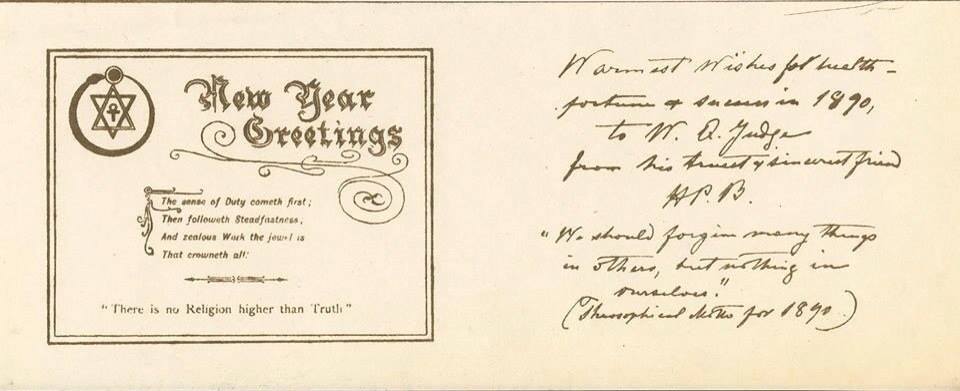 New Year
Greetings
The sense of Duty cometh first;
Then followeth Steadfastness,
And zealous Work the jewel is
That crowneth all:
"There is no Religion higher than Truth"
Warmest Wishes for health –
fortune & success in 1890,
to W. Q. Judge
from his truest & sincerest friend
H.P.B.
"We should forgive many things
in others, but nothing in
ourselves."
(Theosophical Motto for 1890)